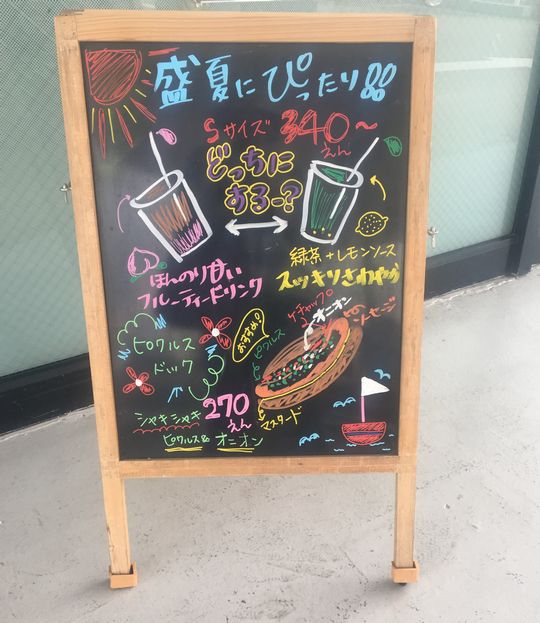 盛夏にぴったり!!
Sサイズ 340~
えん
どっちに
する〜?
ほんのり甘い
フルーティードリンク
緑茶+レモンソース
スッキリさわやか
ピクルス
ドック
おすすめ!
ケチャップ
オニオン
ソーセージ
ピクルス
マスタード
シャキシャキ
ピクルス&オニオン
270
えん